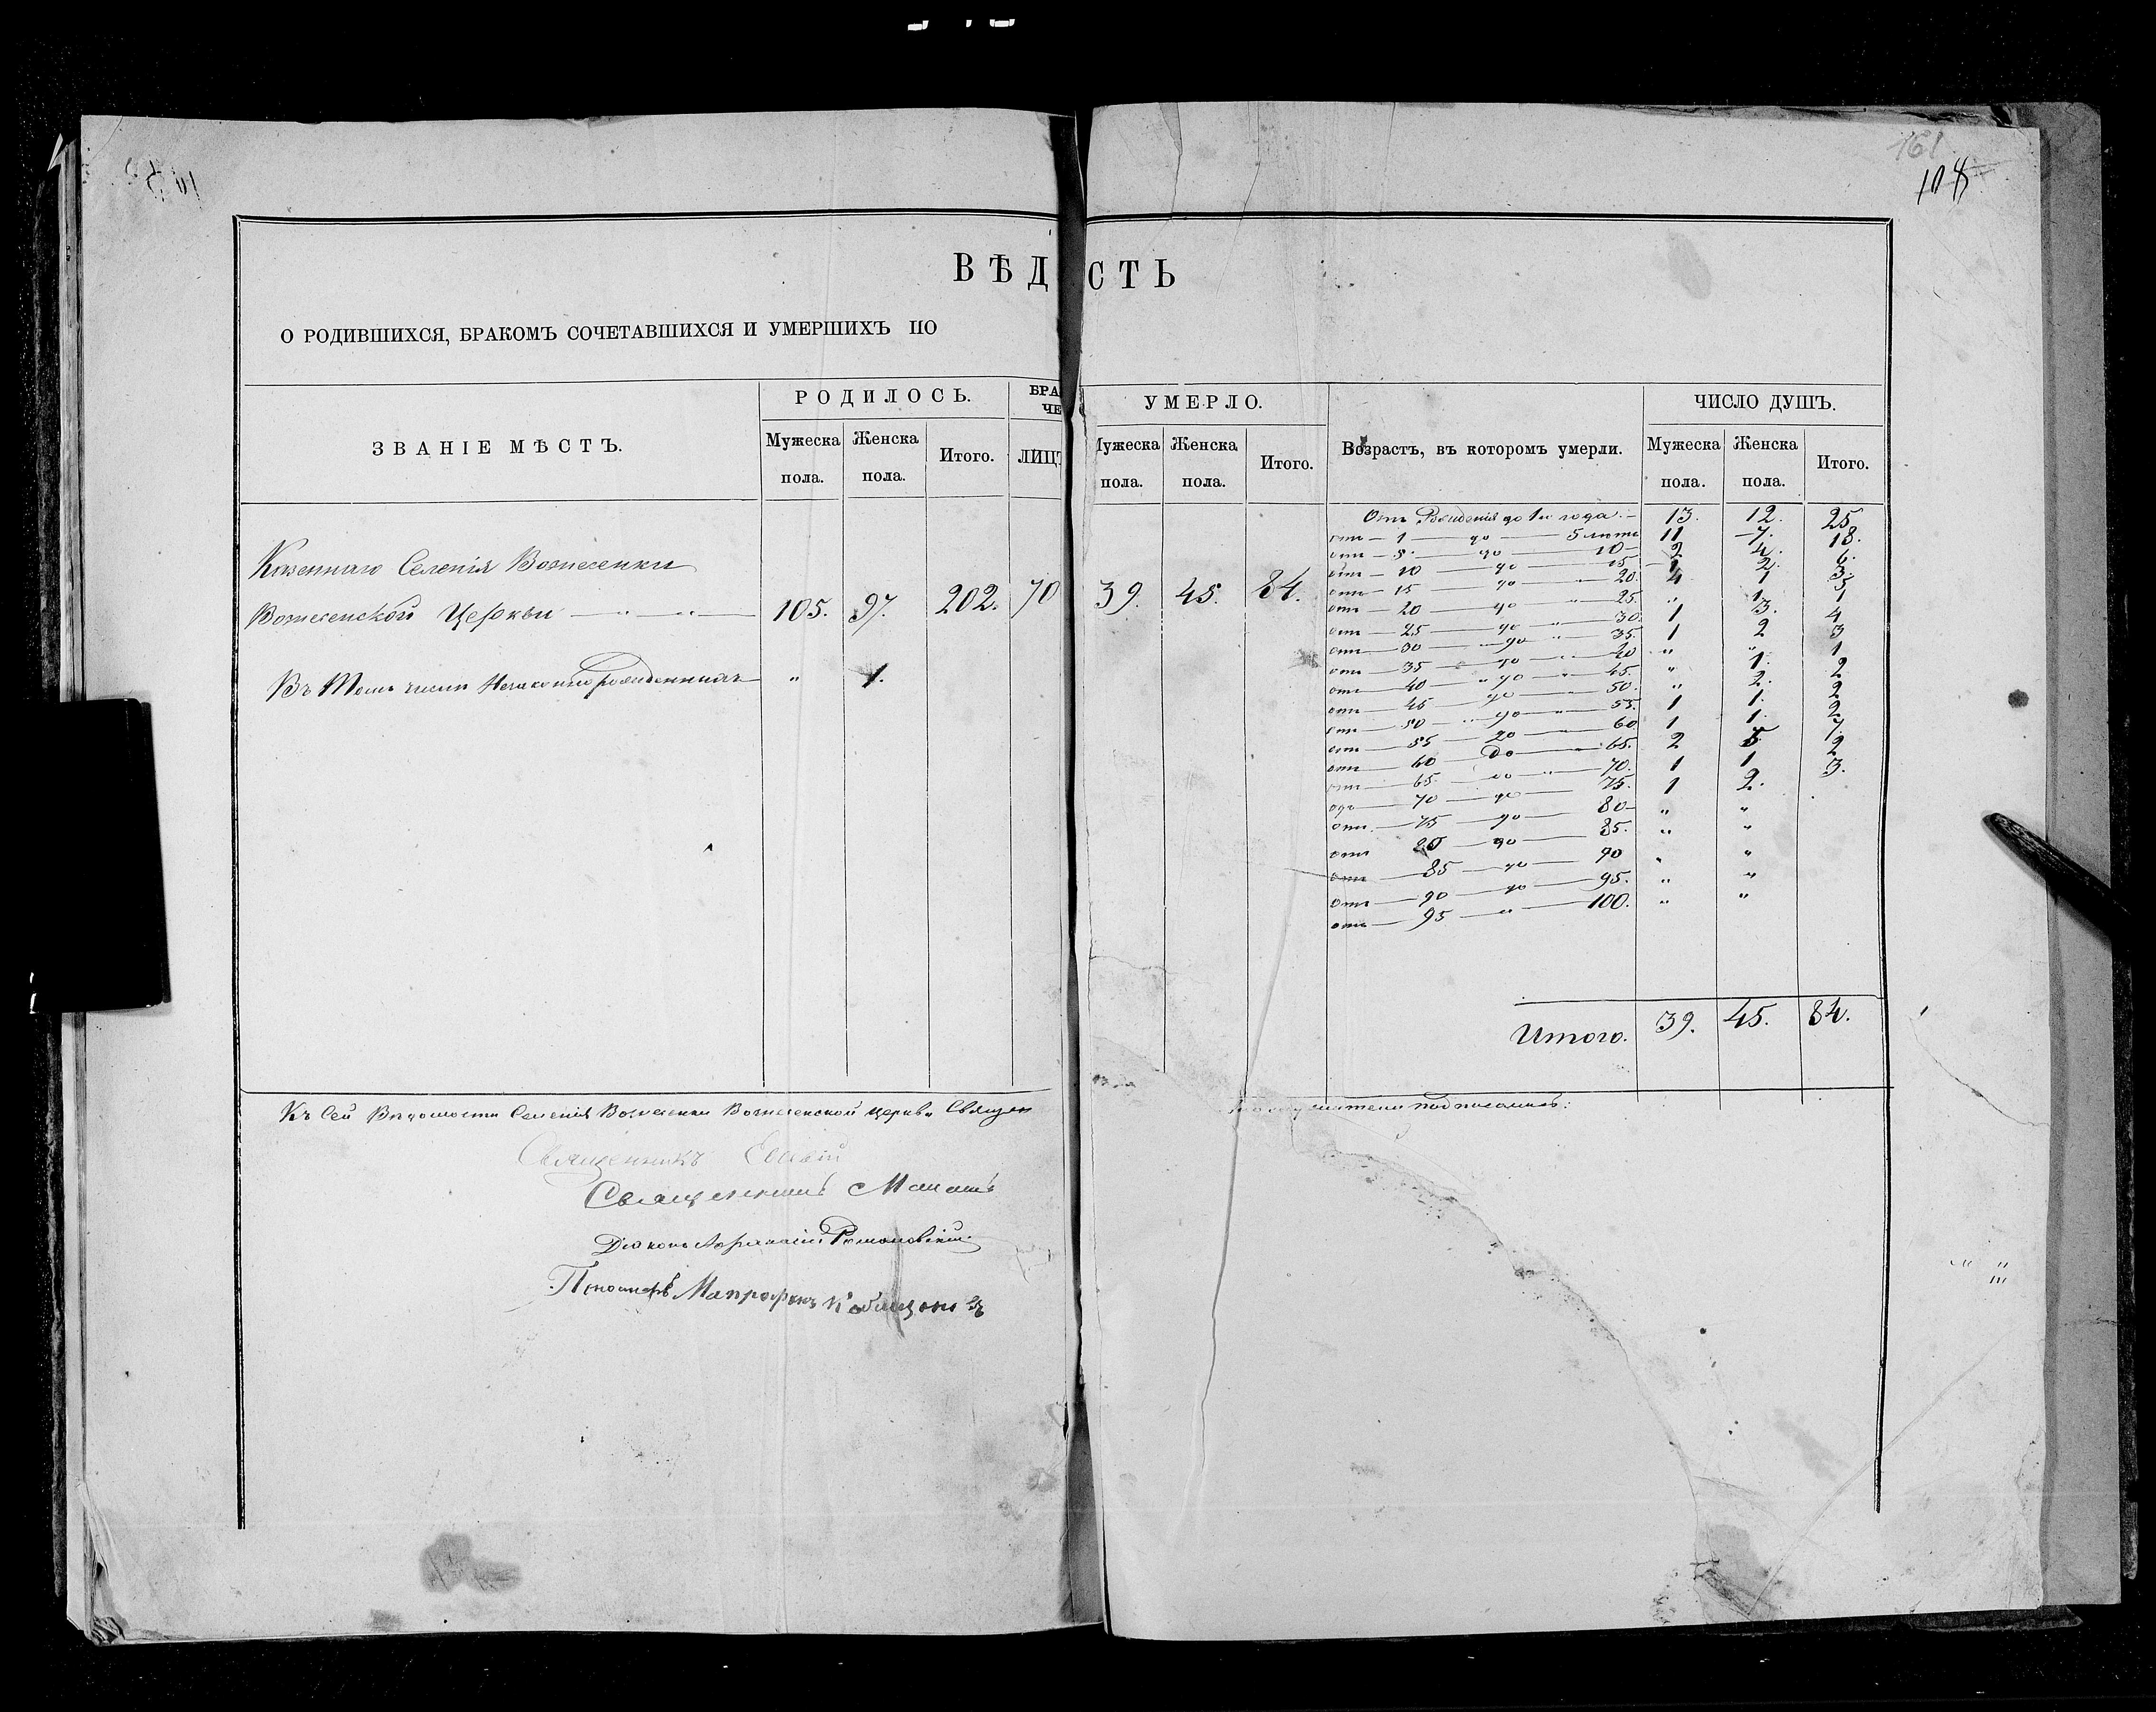 161
108
ВѢД СТЬ
О РОДИВШИХСЯ, БРАКОМЪ СОЧЕТАВШИХСЯ И УМЕРШИХЪ ПО
ЗВАНІЕ МѢСТЪ.
РОДИЛОСЬ.
Мужеска пола.
Женска пола.
Итого.
БРА
ЧЕ
ЛИЦ
УМЕРЛО.
Мужеска пола.
Женска пола.
Итого.
Возрастъ, въ которомъ умерли.
ЧИСЛО ДУШЪ.
Мужеска пола.
Женска пола.
Итого.
Казеннаго Селенія Вознесенки
Вознесенской Церкви — " — " — 105. 97. 202. 70 39. 45. 84.
Въ Томъ числи Незаконно рожденныхъ " 1.
Отъ Рожденія до 1го года. — 13. 12. 25
отъ — 1 — до — 5 лѣтъ 11 7. 18.
отъ — 5 — до — 10 — 2 4. 6.
отъ — 10 — до — 15 1 2. 3.
отъ — 15 — до — " — 20. 4 1 5
отъ — 20 — до — " — 25. " 1. 1
отъ — 25 — до — " — 30. 1 3. 4
отъ — 30 — до — " — 35. 1 2 3
отъ — 35 — до — " — 40 " "
отъ — 40 — " до — " — 45. " 1. 1
отъ — 45 — до — 50. " 2. 2
отъ — 50 — " до — " — 55. 1 1. 2
отъ — 55 — до — 60. 1 1. 2
отъ — 60 — до — 65. 2 5 7.
отъ — 65. — до — " — 70. 1 1 2
отъ — 70 — до — 75. 1 2. 3.
отъ — 75 — до — 80 — " "
отъ 80 — до — 85. " "
отъ — 85 — до — 90 " "
отъ — 90 — до — 95. " "
отъ — 95 — " — 100. " "
Итого. 39. 45. 84.
Къ Сей Вѣдомости Селенія Вознесенки Вознесенской церкви Священ
подписались:
Священникъ
Священникъ
Діаконъ Афанасій Романовскій
Пономарь Митрофанъ